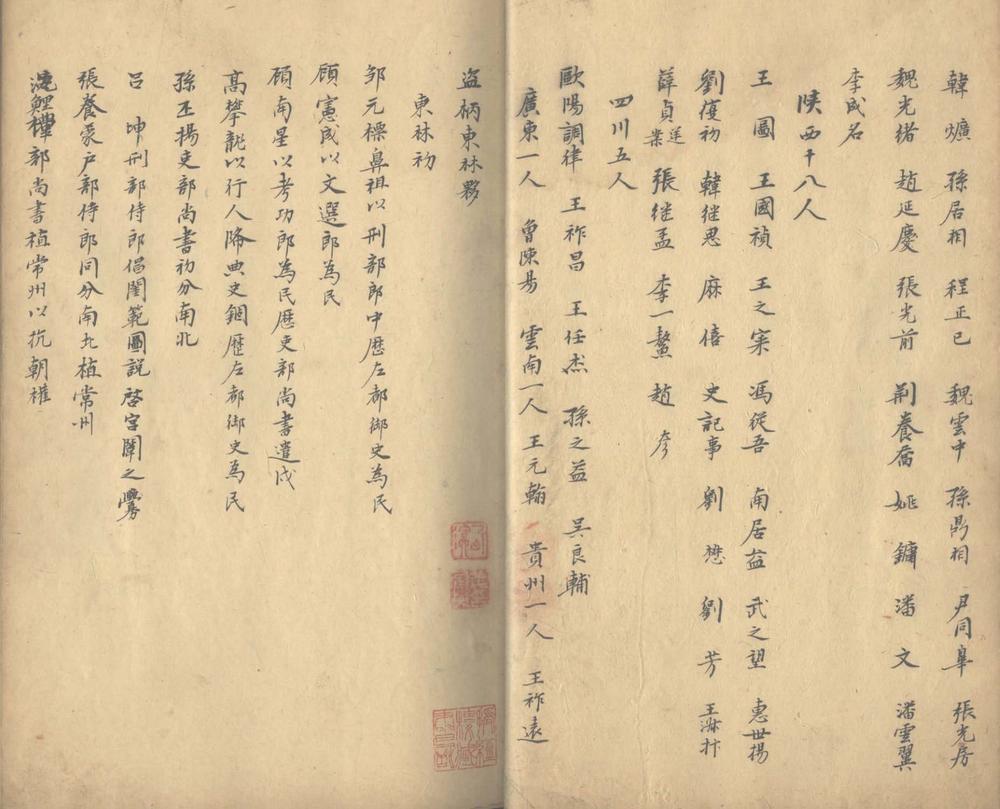 韓爌 孫居相 程正已 魏雲中 孫鼎相 尹同皐 張光房
魏光緒 趙延慶 張光前 荆養喬 姚鏞 潘文 潘雲翼
李成名
陕西十八人
王圖 王國禎 王之寀 馮從吾 南居益 武之望 惠世揚
劉復初 韓继思 麻僖 史記事 劉懋 劉芳 王淑抃
薛貞逆案 張继孟 李一鰲 趙彦
四川五人
歐陽調律 王祚昌 王任杰 孫之益 吴良輔
廣東一人 曾陳易 雲南一人 王元翰 貴州一人 王祚遠
盗柄東林夥
東林初
邹元標鼻祖以刑部郎中歷左都御史為民
顧憲成以文選郎為民
顧南星以考功郎為民歷吏部尚書遣戍
高攀龍以行人降典史錮歷左都御史為民
孫丕揚吏部尚書初分南北
吕坤刑部侍郎倡閨範圖説啓宫闈之釁
張養蒙户部侍郎同分南北植常州
沈鯉禮部尚書植常州以抗朝權